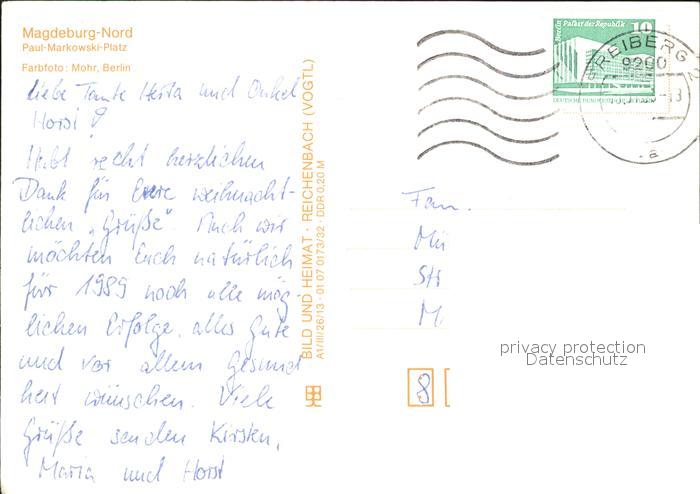 Magdeburg-Nord
Paul-Markowski-Platz
Farbfoto: Mohr, Berlin
Liebe Tante Herta und Onkel
Horst!
Habt recht herzlichen
Dank für Eure weihnacht-
lichen „Grüße“. Auch wir
möchten Euch natürlich
für 1989 noch alle mög-
lichen Erfolge, alles Gute
und vor allem Gesund
heit wünschen. Viele
Grüße senden Kirsten,
Maria und Horst
BILD UND HEIMAT · REICHENBACH (VOGTL)
A1/III/26/13 · 01 07 0173/32 · DDR 0,20 M
Berlin Palast der Republik 10
FREIBERG
9200
-13
a
Fam.
Mü
Str
M
8
privacy protection
Datenschutz